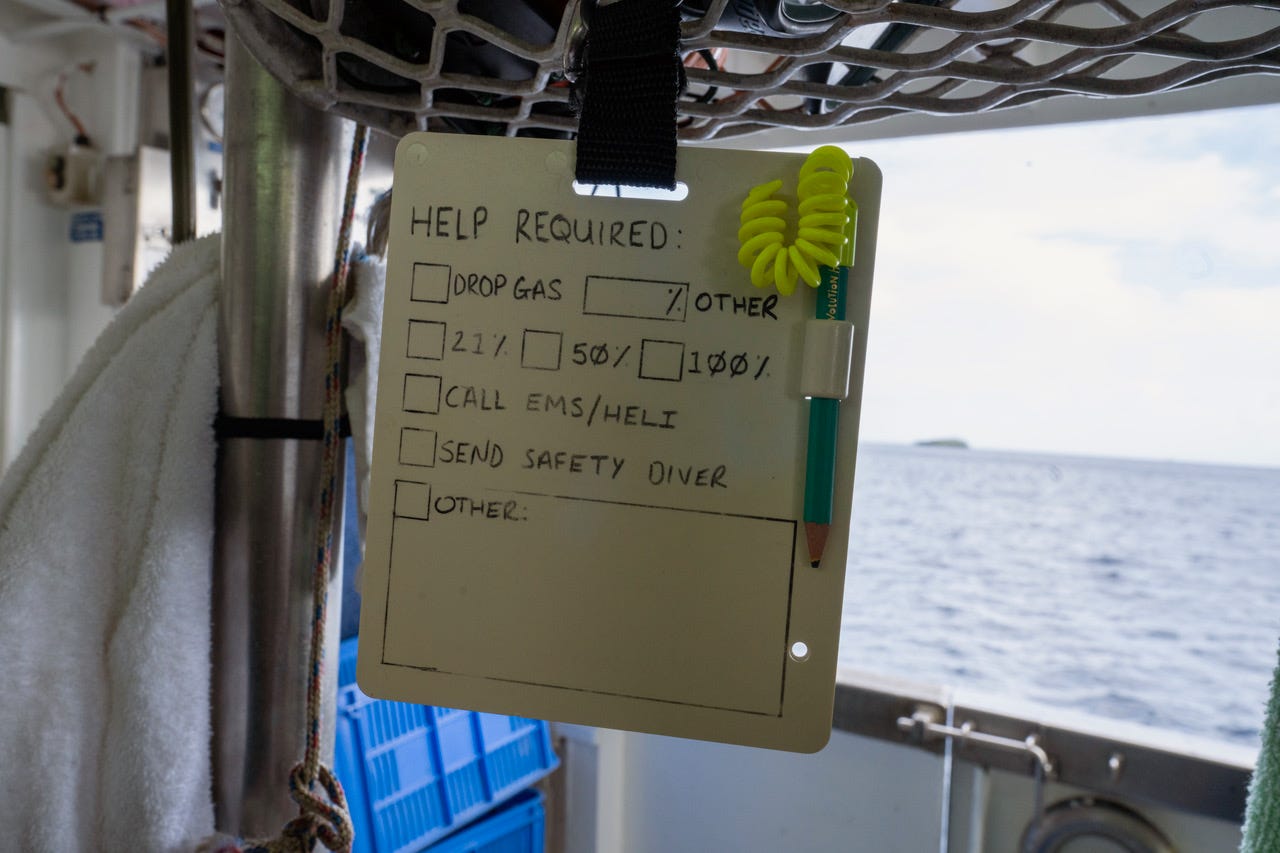 HELP REQUIRED:
DROP GAS % OTHER
21% 50% 100%
CALL EMS/HELI
SEND SAFETY DIVER
OTHER: